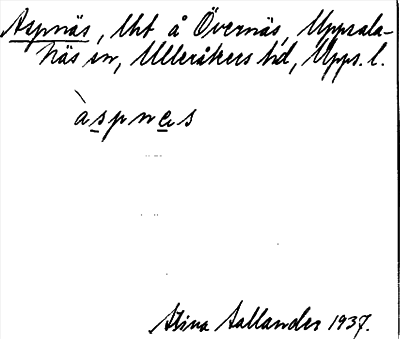 Aspnäs, Uht å Övernäs, Uppsala-
Näs sn, Ulleråkers hd, Upps. l.
àspnes
Stina Sallander 1937.